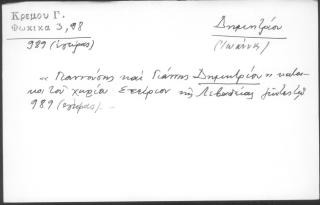 Κρεμου Γ.
Φωκικα 3, 98
989 (έγγρας)
Δημητρίου
(Γιάννης)
"Γιαννούσης καί Γιάννης Δημητρίου" κατοι-
κοι τοῦ χωρίου Στείριον τῆς Λεβαδείας
989 (έγγρας).